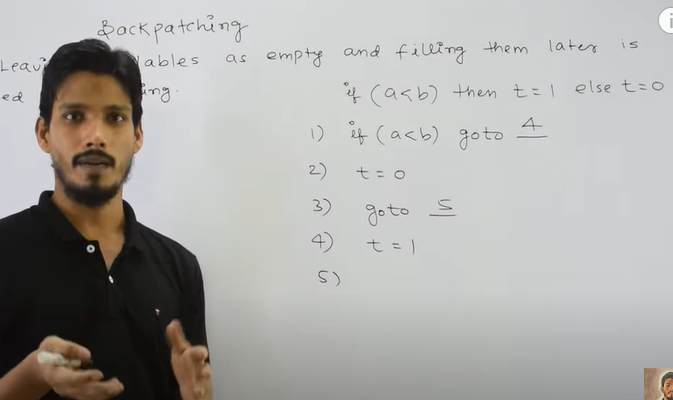 Backpatching
Leavi lables as empty and filling them later is
ed ing.
if (a<b) then t=1 else t=0
1) if (a<b) goto 4
2) t=0
3) goto 5
4) t=1
5)
i